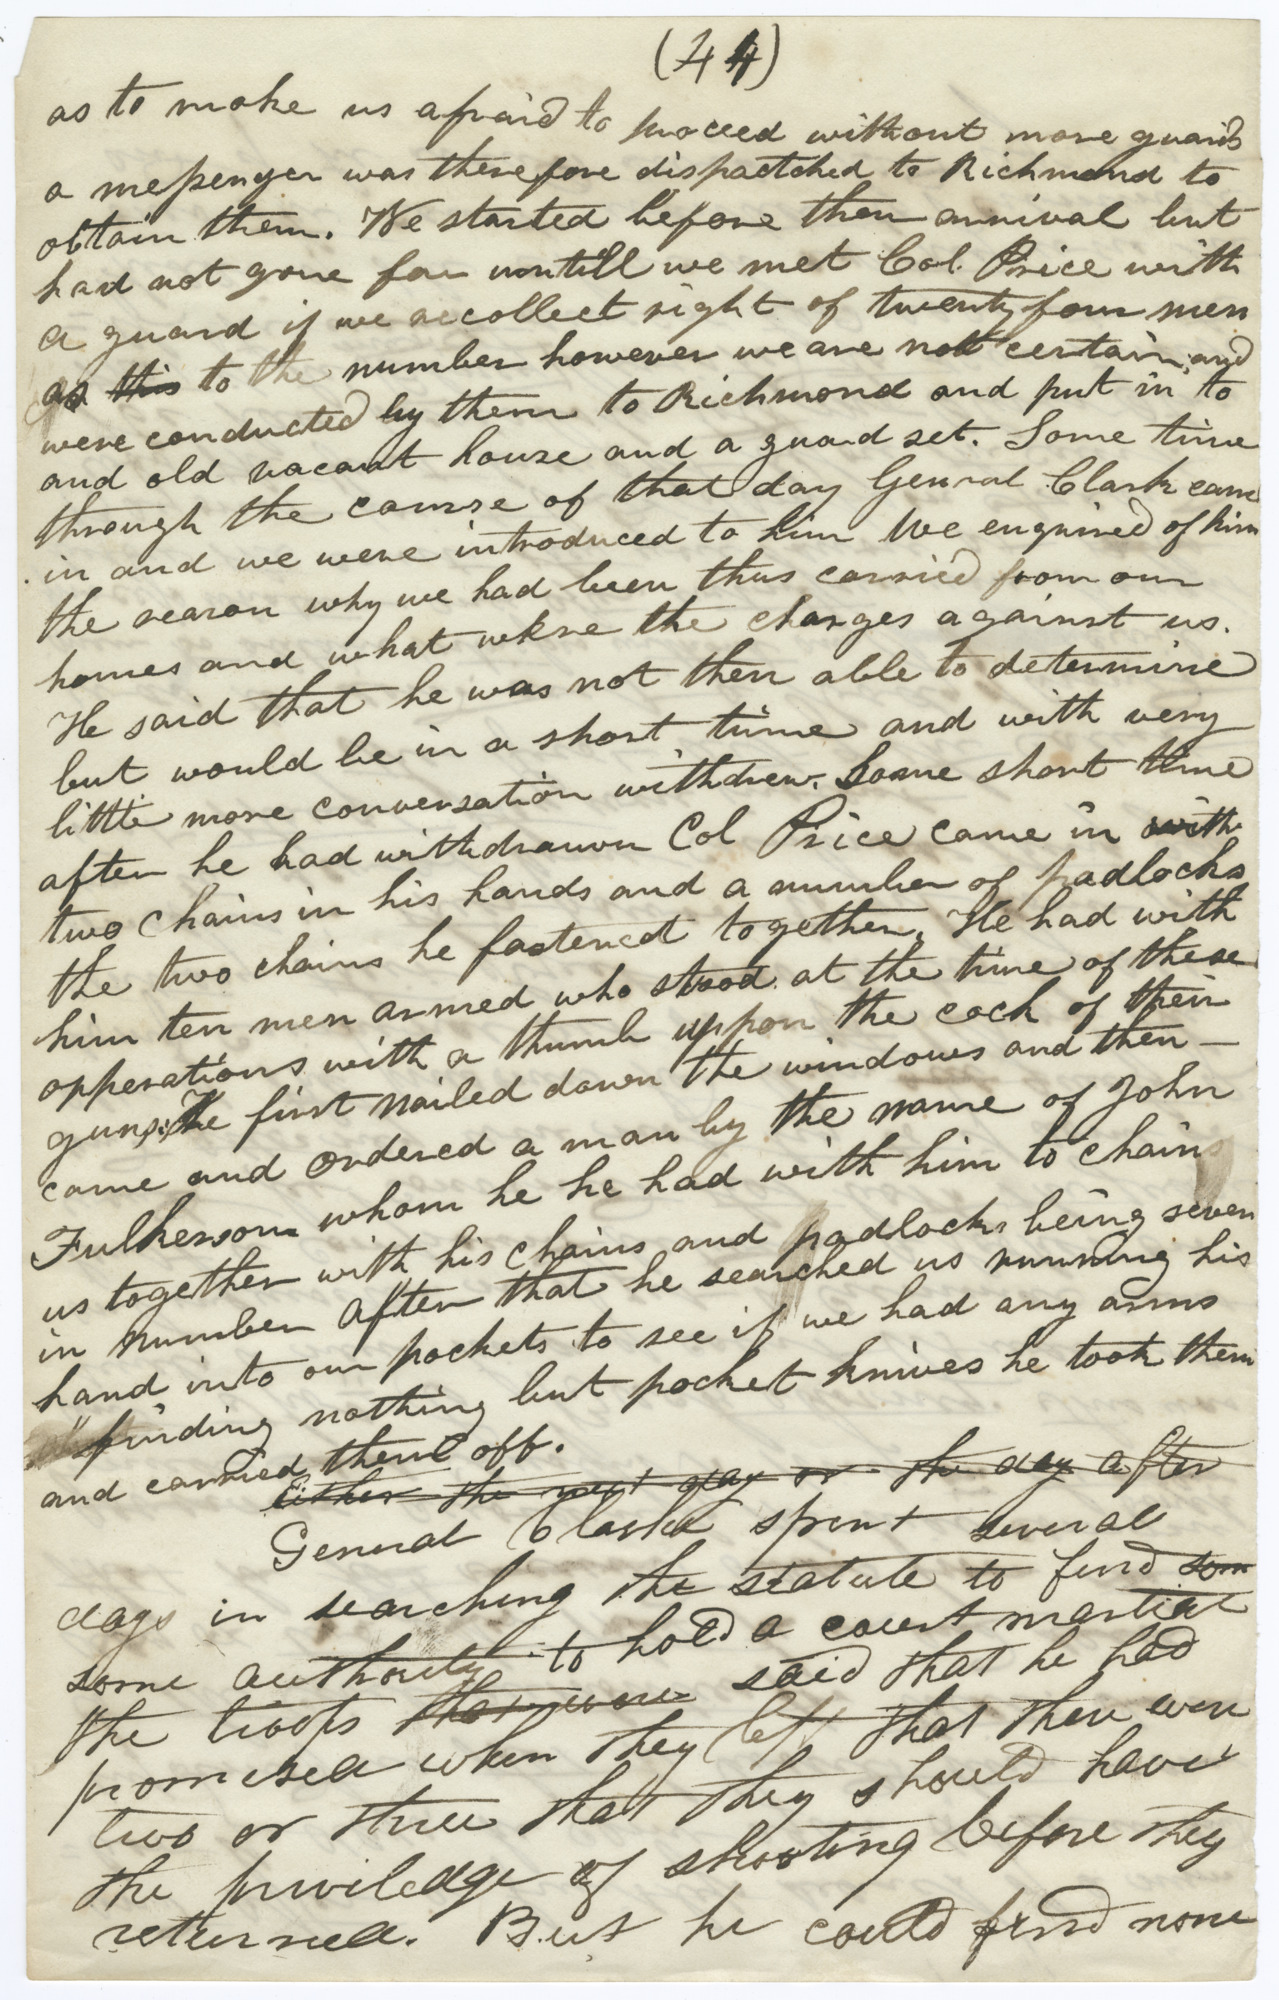 (44)
as to make us afraid to proceed without more guards
a messenger was therefore dispactched to Richmond to
obtain them. We started before their arrival but
had not gone far untill we met Col. Price with
a guard if we recollect right of twenty four men
as this to the number however we are not certain, and
were conducted by them to Richmond and put in to
and old vacant house and a guard set. Some time
through the course of that day General Clark came
in and we were introduced to him We enquired of him
the reason why we had been thus carried from our
homes and what were the charges against us.
He said that he was not then able to determine
but would be in a short time and with very
little more conversation withdrew. Some short time
after he had withdrawn Col Price came in with
two chains in his hands and a number of padlocks
the two chains he fastened together. He had with
him ten men armed who stood at the time of these
opperations with a thumb uppon the cock of their
guns. He first nailed down the windows and then —
came and ordered a man by the name of John
Fulkerson whom he he had with him to chain
us together with his chains and padlocks being seven
in number After that he searched us running his
hand into our pockets to see if we had any arms
finding nothing but pocket knives he took them
and carried them off.
Either the next day or the day after
General Clark spent several
days in searching the statute to find som
some authority to hold a court martial
the troops that were said that he had
promised when they left that there were
two or three that they should have
the priviledge of shooting before they
returned. But he could find none